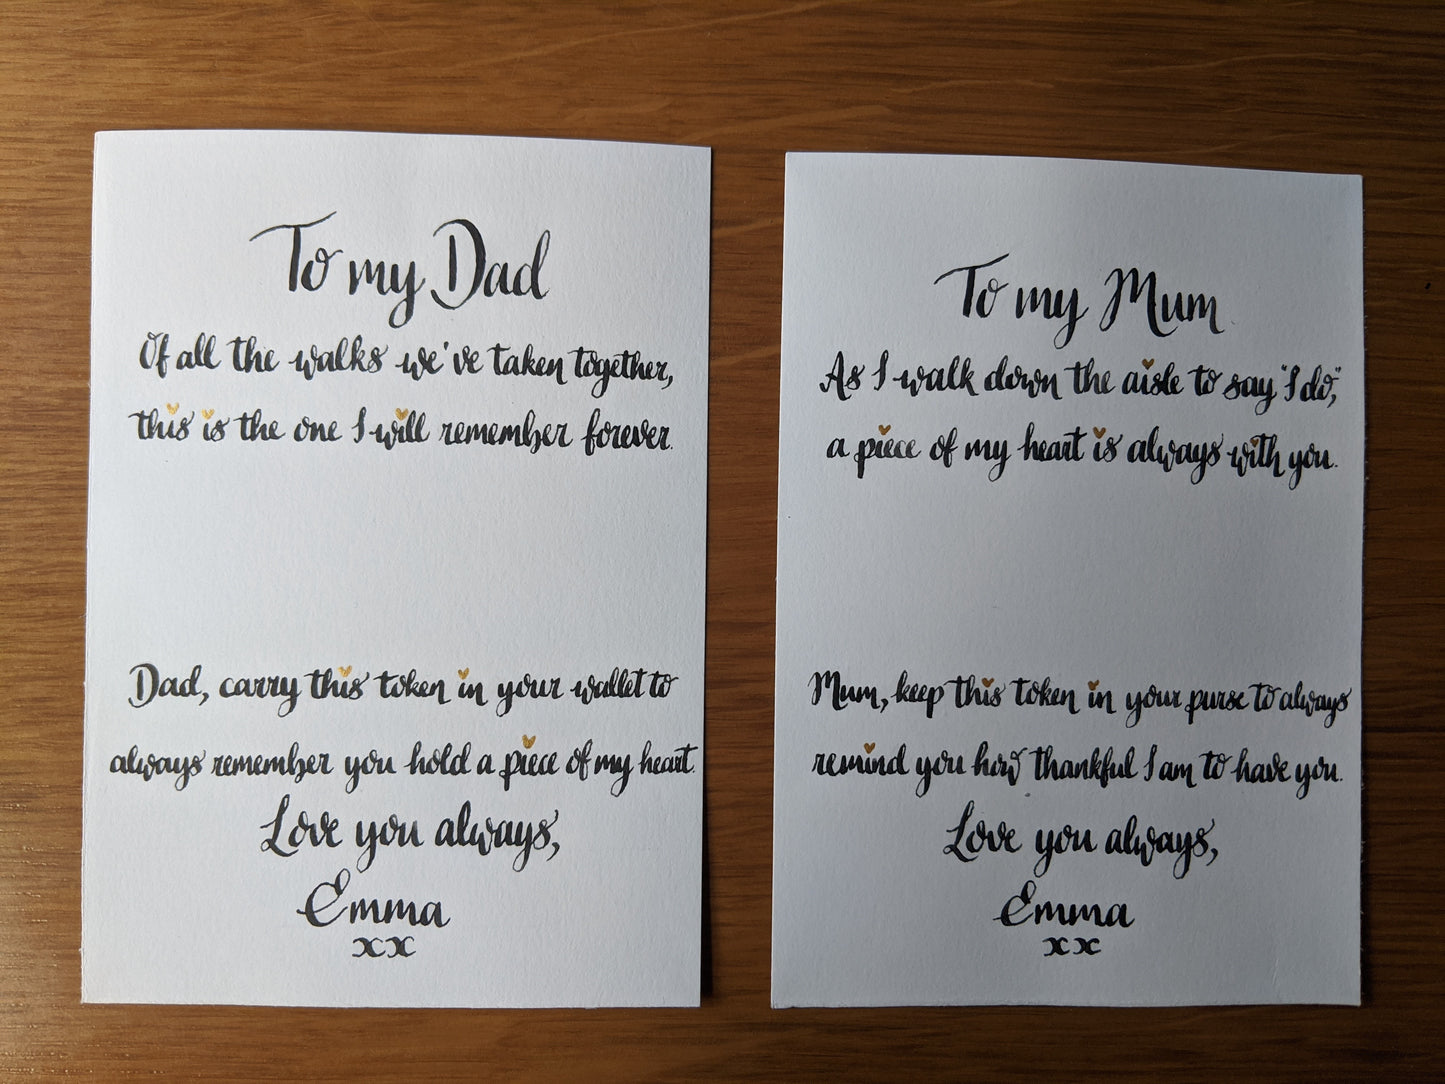 To my Dad
Of all the walks we've taken together,
this is the one I will remember forever.
Dad, carry this token in your wallet to
always remember you hold a piece of my heart.
Love you always,
Emma
xx
To my Mum
As I walk down the aisle to say "I do",
a piece of my heart is always with you.
Mum, keep this token in your purse to always
remind you how thankful I am to have you.
Love you always,
Emma
xx